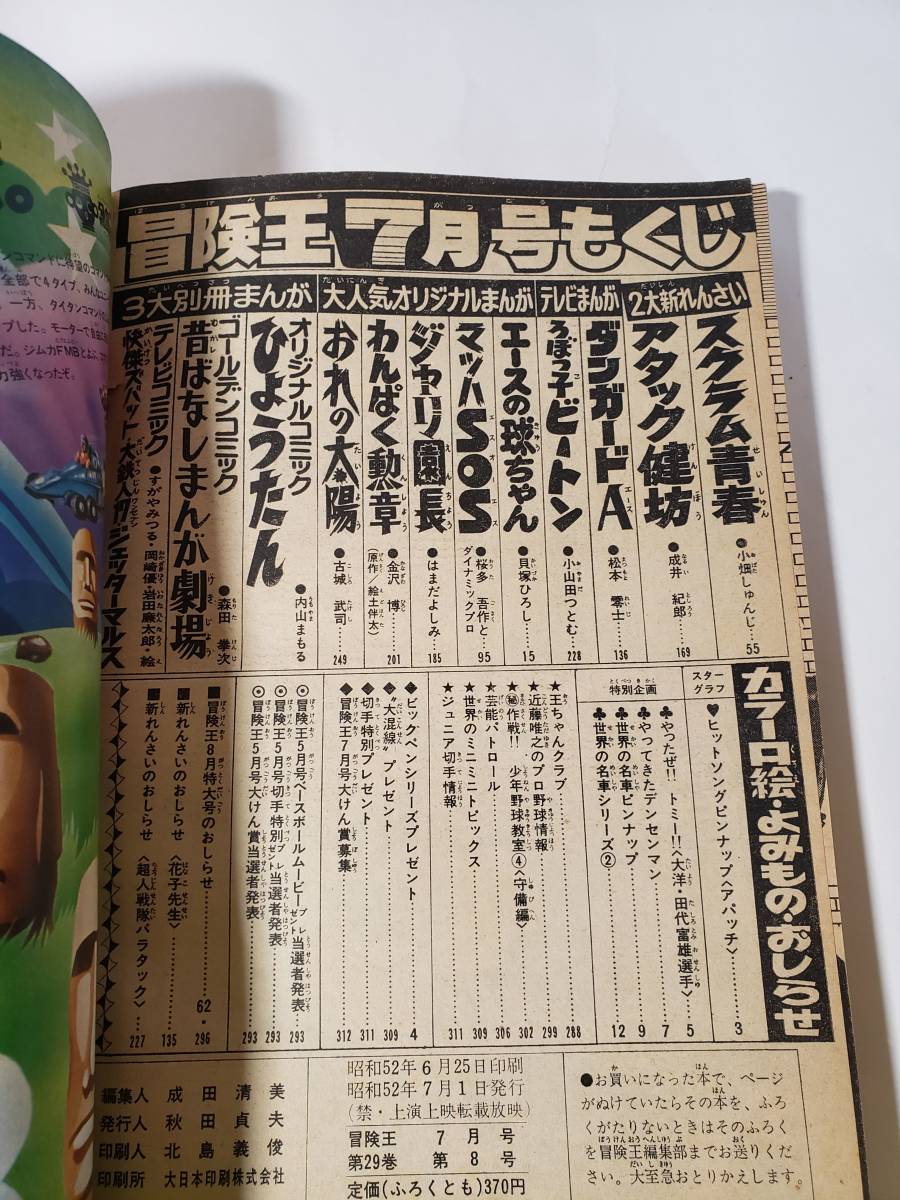 冒険王7月号もくじ
2大新れんさい
スクラム青春 ●小畑しゅんじ…55
アタック健坊 ●成井紀郎…169
テレビまんが
ダンガードA ●松本零士…136
ろぼっ子ビートン ●小山田つとむ…228
大人気オリジナルまんが
エースの球ちゃん ●貝塚ひろし…15
マッハSOS ●桜多吾作と ダイナミックプロ 95
ジャリ園長 ●はまだよしみ…185
わんぱく勲章 ●金沢博…(原作/絵土伴太) 201
おれの太陽 ●古城武司 249
3大別冊まんが
オリジナルコミック
ひょうたん ●内山まもる
ゴールデンコミック
昔ばなしまんが劇場 ●森田拳次
テレビコミック ●すがやみつる・岡崎優・岩田廉太郎・絵
快傑ズバット 大鉄人ワンセブン ガジェッターマルス
カラー口絵・よみもの・おしらせ
スターグラフ
♥ヒットソングピンナップ〈アパッチ〉…3
特別企画
♣やったぜ!!トミー!!〈大洋・田代富雄選手〉…5
♣やってきたデンセンマン…7
♣世界の名車ピンナップ…9
♣世界の名車シリーズ②…12
★王ちゃんクラブ…288
★近藤唯之のプロ野球情報…299
★㊙作戦!!少年野球教室④〈守備編〉…302
★芸能パトロール…306
★世界のミニミトピックス…309
★ジュニア切手情報…311
◆ビックペンシリーズプレゼント…4
◆“大混線”プレゼント…309
◆切手特別プレゼント…311
◆冒険王7月号大けん賞募集…312
◉冒険王5月号ベースボールムービープレゼント当選者発表…293
◉冒険王5月号切手特別プレゼント当選者発表…293
◉冒険王5月号大けん賞当選者発表…293
■冒険王8月特大号のおしらせ…62・296
■新れんさいのおしらせ〈花子先生〉…135
■新れんさいのおしらせ〈超人戦隊バラタック〉…227
●お買いになった本で、ページ
がぬけていたらその本を、ふろ
くがたりないときはそのふろく
を冒険王編集部までお送りくだ
さい。大至急おとりかえします。
昭和52年6月25日印刷
昭和52年7月1日発行
(禁・上演上映転載放映)
冒険王 7月号
第29巻 第8号
定価(ふろくとも)370円
編集人 成田清美
発行人 秋田貞夫
印刷人 北島義俊
印刷所 大日本印刷株式会社
全部で4タイプ、みんな
一方、タイタンコマンド
プした。モーターで自由
だ。ジムカFMBとよぶ
力強くなったぞ。